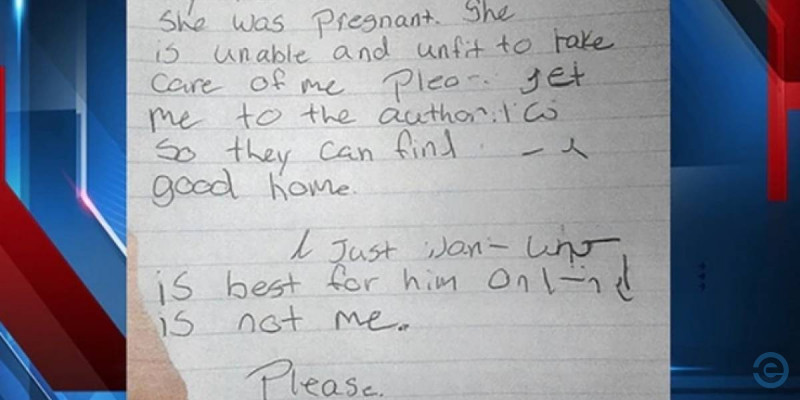 She was Pregnant. She
is unable and unfit to take
care of me get
me to the
So they can find
good home.
I Just
is best for him
is not me.
Please.